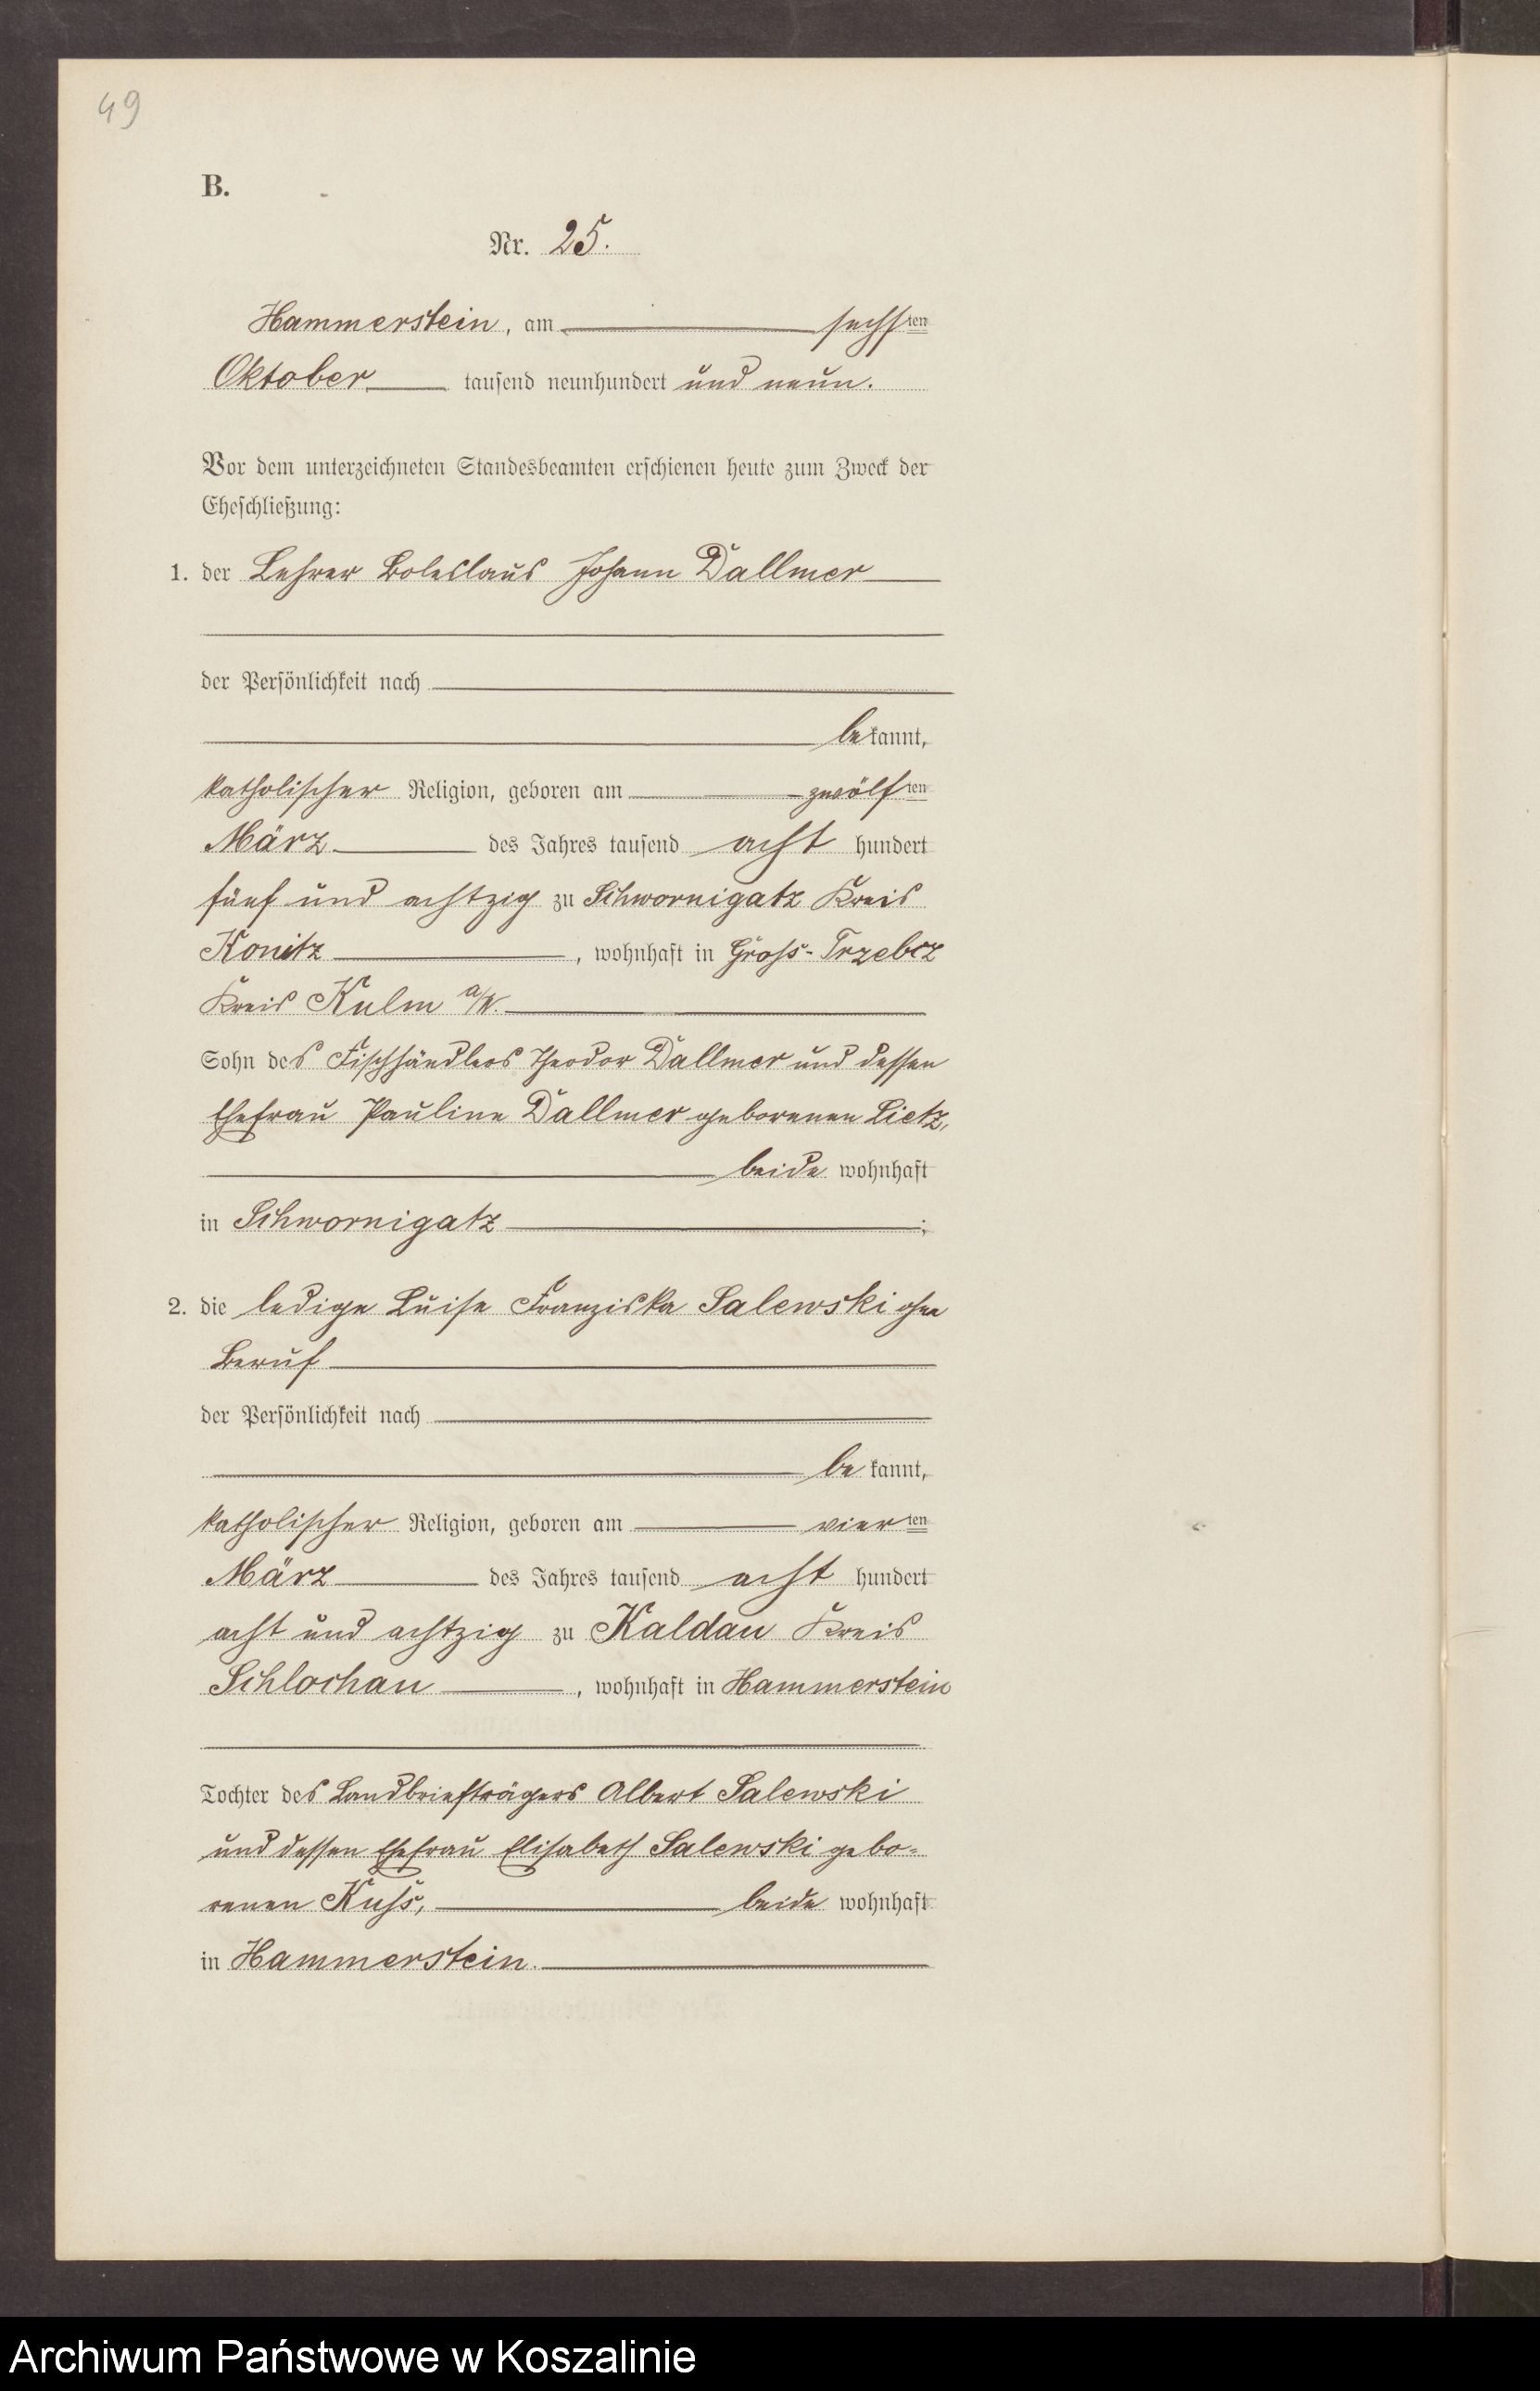 49
B.
Nr. 25.
Hammerstein, am sechsten
Oktober tausend neunhundert und neun.
Vor dem unterzeichneten Standesbeamten erschienen heute zum Zweck der
Eheschließung:
1. der Lehrer Boleslaus Johann Dallmer
der Persönlichkeit nach
bekannt,
katholischer Religion, geboren am zwölften
März des Jahres tausend acht hundert
fünf und achtzig zu Schwornigatz Kreis
Konitz, wohnhaft in Gross-Trzebcz
Kreis Kulm a/W.
Sohn des Fischhändlers Theodor Dallmer und dessen
Ehefrau Pauline Dallmer geborenen Lietz,
beide wohnhaft
in Schwornigatz;
2. die ledige Luise Franziska Salewski ohne
Beruf
der Persönlichkeit nach
bekannt,
katholischer Religion, geboren am vierten
März des Jahres tausend acht hundert
acht und achtzig zu Kaldau Kreis
Schlochau, wohnhaft in Hammerstein
Tochter des Landbriefträgers Albert Salewski
und dessen Ehefrau Elisabeth Salewski gebo-
renen Kuss, beide wohnhaft
in Hammerstein.
Archiwum Państwowe w Koszalinie